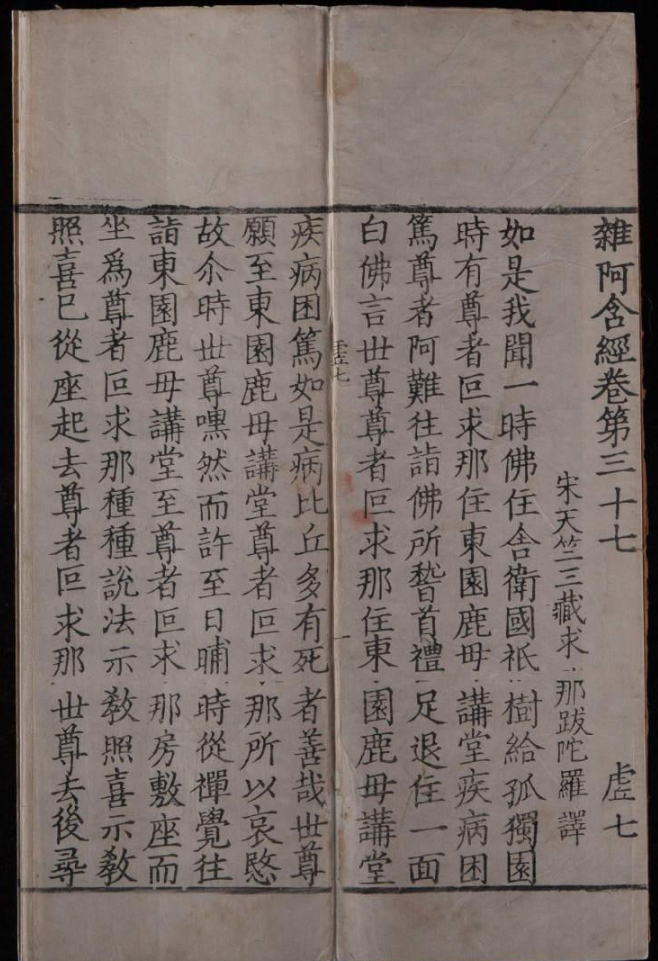 雜阿含經卷第三十七 虛七
宋天竺三藏求那跋陀羅譯
如是我聞一時佛住舍衛國祇樹給孤獨園
時有尊者叵求那住東園鹿母講堂疾病困
篤尊者阿難往詣佛所稽首禮足退住一面
白佛言世尊尊者叵求那住東園鹿母講堂
虛七
一
疾病困篤如是病比丘多有死者善哉世尊
願至東園鹿母講堂尊者叵求那所以哀愍
故尒時世尊嘿然而許至日晡時從禪覺往
詣東園鹿母講堂至尊者叵求那房敷座而
坐爲尊者叵求那種種說法示教照喜示教
照喜已從座起去尊者叵求那世尊去後尋